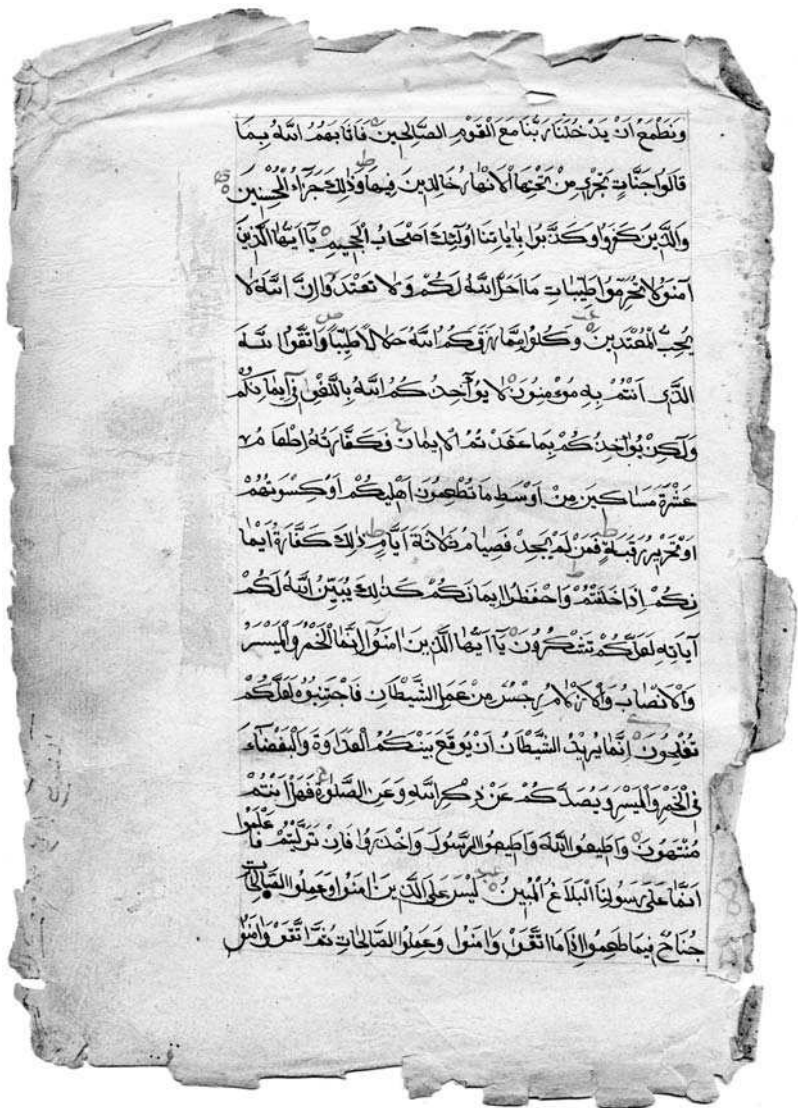 وَنَطْمَعُ اَنْ يَدْخُلَنَا رَبُّنَا مَعَ الْقَوْمِ الصَّالِحِينَ فَاَثَابَهُمُ اللّٰهُ بِمَا
قَالُوا جَنَّاتٍ تَجْرِي مِنْ تَحْتِهَا الْاَنْهَارُ خَالِدِينَ فِيهَا وَذٰلِكَ جَزَآءُ الْمُحْسِنِينَ
وَالَّذِينَ كَفَرُوا وَكَذَّبُوا بِاٰيَاتِنَا اُولٰئِكَ اَصْحَابُ الْجَحِيمِ يَآ اَيُّهَا الَّذِينَ
آمَنُو لَا تُحَرِّمُوا طَيِّبَاتِ مَا اَحَلَّ اللّٰهُ لَكُمْ وَلَا تَعْتَدُوا اِنَّ اللّٰهَ لَا
يُحِبُّ الْمُعْتَدِينَ وَكُلُوا مِمَّا رَزَقَكُمُ اللّٰهُ حَلَالًا طَيِّبًا وَاتَّقُوا للّٰهَ
الَّذِي اَنْتُمْ بِهِ مُؤْمِنُونَ لَا يُؤَآخِذُكُمُ اللّٰهُ بِاللَّغْوِ فِي اَيْمَانِكُمْ
وَلٰكِنْ يُؤَاخِذُكُمْ بِمَا عَقَدْتُمُ الْاَيْمَانَ فَكَفَّارَتُهُ اِطْعَامُ
عَشْرَةَ مَسَاكِينَ مِنْ اَوْسَطِ مَا تُطْعِمُونَ اَهْلِيكُمْ اَوْ كِسْوَتُهُمْ
اَوْ تَحْرِيرُ رَقَبَةٍ فَمَنْ لَمْ يَجِدْ فَصِيَامُ ثَلَاثَةَ اَيَّامٍ ذٰلِكَ كَفَّارَةُ اَيْمَا
نِكُمْ اِذَا حَلَفْتُمْ وَاحْفَظُوا اَيْمَانَكُمْ كَذٰلِكَ يُبَيِّنُ اللّٰهُ لَكُمْ
آيَاتِهِ لَعَلَّكُمْ تَشْكُرُونَ يَآ اَيُّهَا الَّذِينَ اٰمَنُوآ اِنَّمَا الْخَمْرُ وَالْمَيْسِرُ
وَالْاَنْصَابُ وَالْاَزْلَامُ رِجْسٌ مِنْ عَمَلِ الشَّيْطَانِ فَاجْتَنِبُوهُ لَعَلَّكُمْ
تُفْلِحُونَ اِنَّمَا يُرِيدُ الشَّيْطَانُ اَنْ يُوقَعَ بَيْنَكُمُ الْعَدَاوَةَ وَالْبَغْضَآءَ
فِي الْخَمْرِ وَالْمَيْسِرِ وَيَصُدَّكُمْ عَنْ ذِكْرِ اللّٰهِ وَعَنِ الصَّلٰوةِ فَهَلْ اَنْتُمْ
مُنْتَهُونَ وَاَطِيعُو اللّٰهَ وَاَطِيعُو الرَّسُولَ وَاحْذَرُوا فَاِنْ تَوَلَّيْتُمْ فَاعْلَمُوا
اَنَّمَا عَلٰى رَسُولِنَا الْبَلَاغُ الْمُبِينُ لَيْسَ عَلَى الَّذِينَ اٰمَنُوا وَعَمِلُوا الصَّالِحَاتِ
جُنَاحٌ فِيمَا طَعِمُوا اِذَا مَا اتَّقَوْا وَاٰمَنُوا وَعَمِلُوا الصَّالِحَاتِ ثُمَّ اتَّقَوْ وَاٰمَنُوا